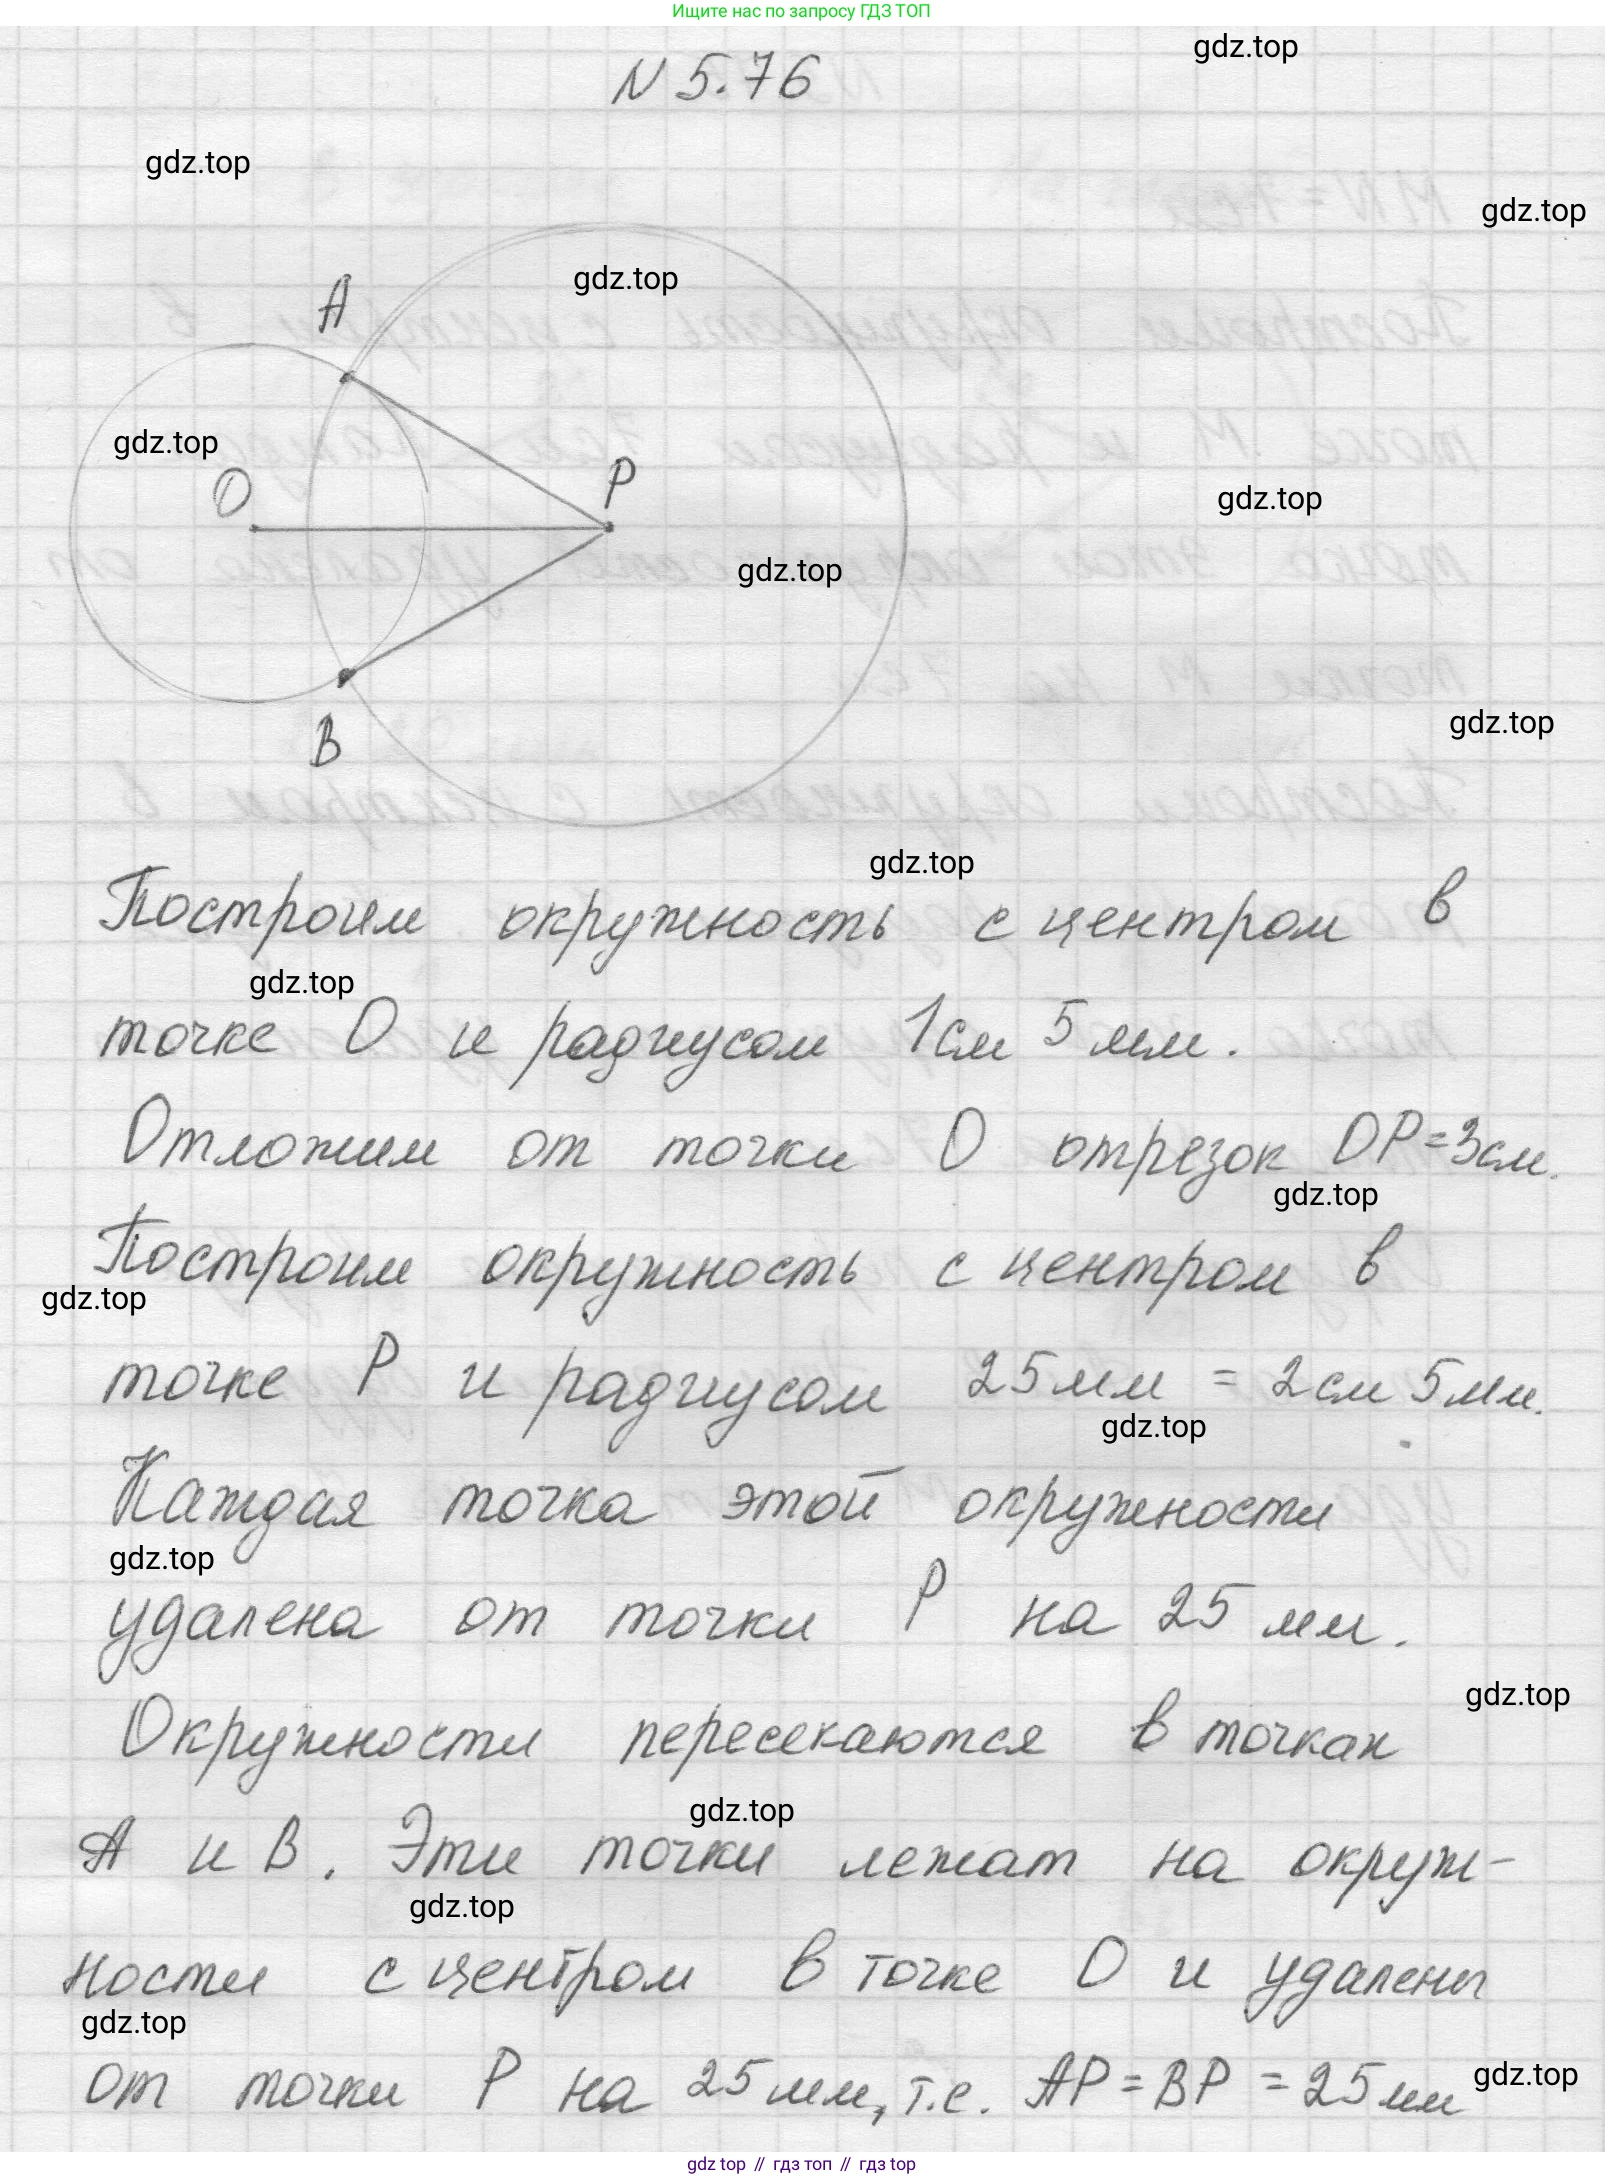 Ищите нас по запросу ГДЗ ТОП
gdz.top
N 5.76
gdz.top
gdz.top
gdz.top
A
gdz.top
O
P
gdz.top
gdz.top
gdz.top
B
gdz.top
Построим окружность с центром в
gdz.top
точке O и радиусом 1 см 5 мм.
Отложим от точки O отрезок OP = 3 см.
gdz.top
Построим окружность с центром в
gdz.top
точке P и радиусом 25 мм = 2 см 5 мм.
gdz.top
Каждая точка этой окружности
gdz.top
удалена от точки P на 25 мм.
gdz.top
Окружности пересекаются в точках
gdz.top
A и B. Эти точки лежат на окруж-
gdz.top
ности с центром в точке O и удалены
gdz.top
от точки P на 25 мм, т.е. AP = BP = 25 мм
gdz.top
gdz top // гдз топ // гдз top